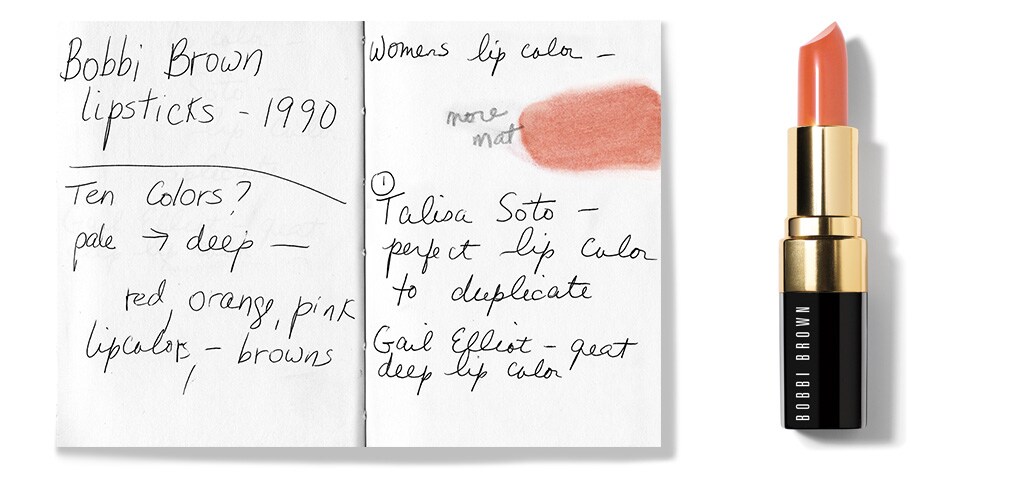 Bobbi Brown
lipsticks - 1990
Ten Colors?
pale → deep —
red, orange, pink
lipcolors - browns
Womens lip color -
more
mat
1
Talisa Soto -
perfect lip color
to duplicate
Gail Elliot - great
deep lip color
BOBBI BROWN